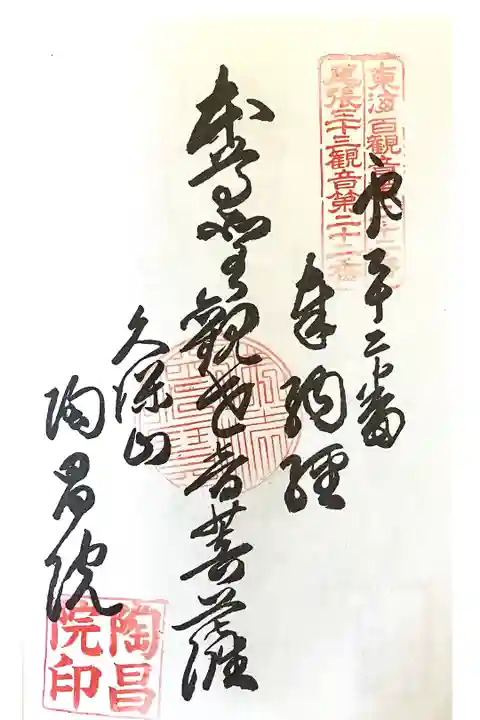 東海百觀音
尾張三十三観音第二十二番
十二番
奉納經
本尊聖觀世音菩薩
久保山
陶昌院
陶昌
院印